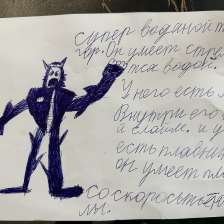 супер водяной т
гр. Он умеет стру
тся водой.
У него есть
Внутри его
и слайм. и у
есть плавни
он умеет пл
со скоростью
лы.